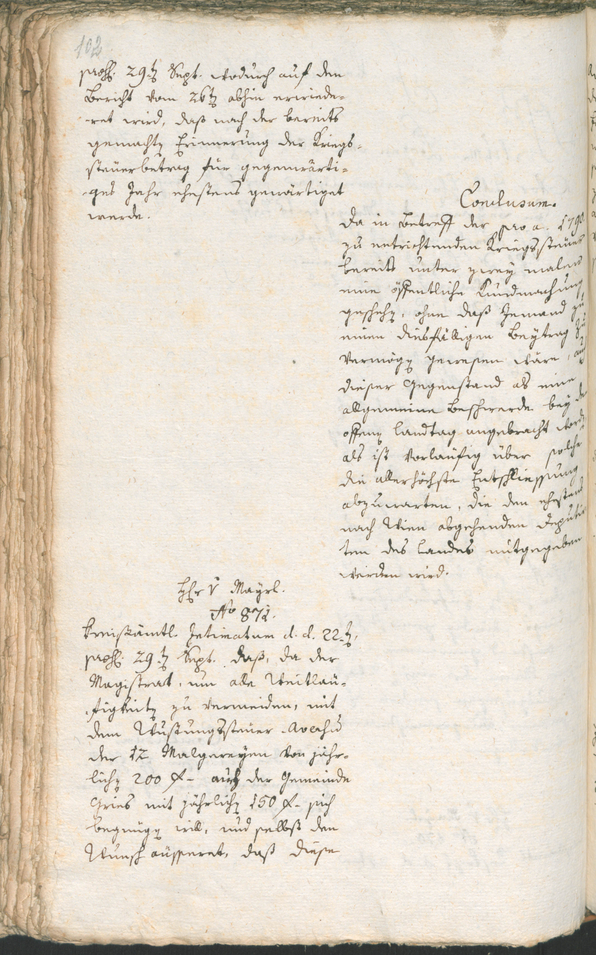 102
prass: 29ten Sept. wodurch auf den
Bericht vom 26ten abhin erwiede-
ret wird, daß nach der bereits
gemachten Erinnerung der Kriegs-
steuerbetrag für gegenwärti-
ges Jahr ehestens gewärtiget
werde.
Conclusum.
Da in Betreff der pro a. 1790
zu entrichtenden Kriegssteuer
bereits unter zwey malen
eine öffentliche Kundmachung
geschehen, ohne daß Jemand zu
einen diesfälligen Beytrag zu
vermögen gewesen wäre, auch
dieser Gegenstand als eine
allgemeine Beschwerde bey dem
offenen Landtag angebracht worden
als ist vorläufig über solche
die allerhöchste Entschliessung
abzuwarten, die den ehestens
nach Wien abgehenden Deputir-
ten des Landes mitgegeben
werden wird.
Hr v Mayrl.
No 871.
Kreisämtl. Intimatum d. d. 22ten,
prass: 29ten Sept. daß, da der
Magistrat, um alle Weitläu-
figkeiten zu vermeiden, mit
dem Rustungssteuer
der 12 Malgereyen von jähr-
lichen 200 f - auch der Gemeinde
Gries mit jährlichen 150 f - sich
begnügen will, und selbst den
Wunsch äusseret, daß diese